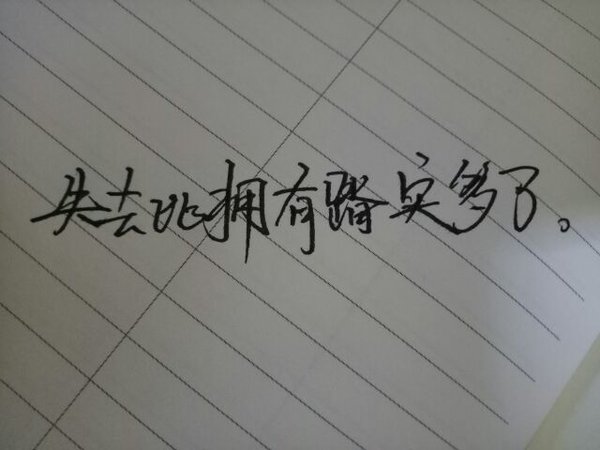 失去比拥有踏实多了。